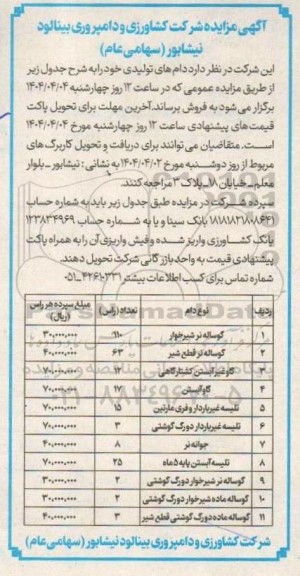 آگهی مزایده شرکت کشاورزی و دامپروری بینالود
نیشابور (سهامی عام)
این شرکت در نظر دارد دام های تولیدی خود را به شرح جدول زیر
از طریق مزایده عمومی که در ساعت ۱۲ روز چهارشنبه ۱۴۰۴/۰۴/۰۴
برگزار می شود به فروش برساند. آخرین مهلت برای تحویل پاکت
قیمت های پیشنهادی ساعت ۱۲ روز چهارشنبه مورخ ۱۴۰۴/۰۴/۰۴
است. متقاضیان می توانند برای دریافت و تحویل کاربرگ های
مربوط از روز دوشنبه مورخ ۱۴۰۴/۰۴/۰۲ به نشانی : نیشابور - بلوار
معلم - خیابان ۱۸ - پلاک ۳ مراجعه کنند.
سپرده شرکت در مزایده طبق جدول زیر باید به شماره حساب
بانک سینا و یا به شماره حساب ۱۲۳۸۳۴۹۶۹
بانک کشاورزی واریز شده و فیش واریزی آن را به همراه پاکت
پیشنهادی قیمت به واحد بازرگانی شرکت تحویل دهند.
شماره تماس برای کسب اطلاعات بیشتر ۴۲۶۱۰۳۳۱-۰۵۱
ردیف نوع دام تعداد (راس) مبلغ سپرده هر راس (ریال)
۱ گوساله نر شیرخوار ۱۱۰ ۳۰,۰۰۰,۰۰۰
۲ گوساله نر قطع شیر ۶۳ ۴۰,۰۰۰,۰۰۰
۳ گاو غیر آبستن کشتارگاهی ۱۲ ۷۰,۰۰۰,۰۰۰
۴ گاو آبستن ۱۷ ۷۰,۰۰۰,۰۰۰
۵ تلیسه غیرباردار و فری مارتین ۱۵ ۷۰,۰۰۰,۰۰۰
۶ تلیسه غیرباردار دورگ گوشتی ۳ ۷۰,۰۰۰,۰۰۰
۷ جوانه نر ۸ ۴۰,۰۰۰,۰۰۰
۸ تلیسه آبستن پابه ۵ ماه ۲۵ ۷۰,۰۰۰,۰۰۰
۹ گوساله نر شیرخوار دورگ گوشتی ۲ ۳۰,۰۰۰,۰۰۰
۱۰ گوساله ماده شیرخوار دورگ گوشتی ۲ ۳۰,۰۰۰,۰۰۰
۱۱ گوساله ماده دورگ گوشتی قطع شیر ۳ ۴۰,۰۰۰,۰۰۰
شرکت کشاورزی و دامپروری بینالود نیشابور (سهامی عام)